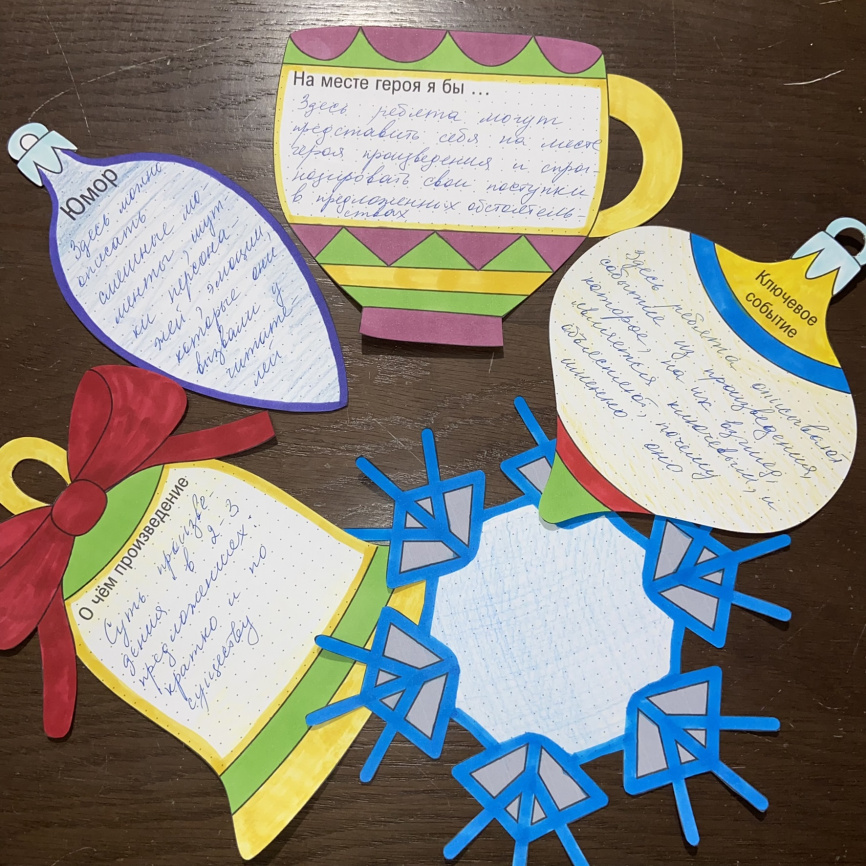 На месте героя я бы ...
Здесь ребята могут
представить себя на месте
героя произведения и спрог-
нозировать свои поступки
в предложенных обстоятель-
ствах
Юмор
Здесь можно
описать
смешные мо-
менты, шут-
ки персона-
жей, эмоции,
которые они
вызвали у
читате-
лей
Ключевое
событие
Здесь ребята описывают
событие из произведения,
которое, на их взгляд,
является ключевым, и
объясняют, почему
именно оно
О чём произведение
Суть произве-
дения в 2-3
предложениях:
кратко и по
существу